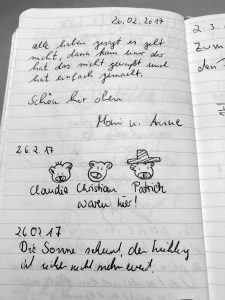 26.02.2017
alle haben gesagt es geht
nicht, dann kam einer der
hat das nicht gewußt und
hat einfach gemacht.
Schön hier oben
u. Anne
26.2.17
Claudia Christian Patrick
waren hier!
26.02.17
Die Sonne scheint, der Frühling
ist sicher nicht mehr weit.
2.3.
Zum
den